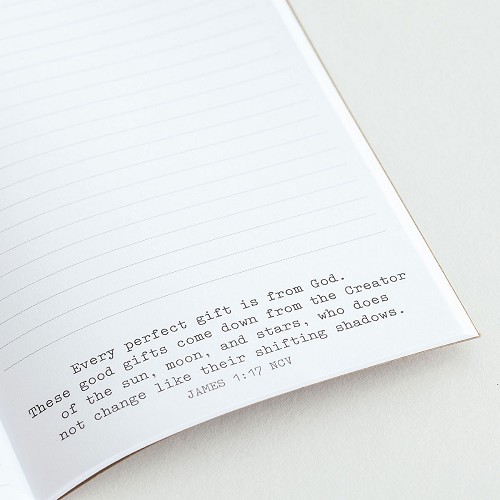 Every perfect gift is from God.
These good gifts come down from the Creator
of the sun, moon, and stars, who does
not change like their shifting shadows.
JAMES 1:17 NCV